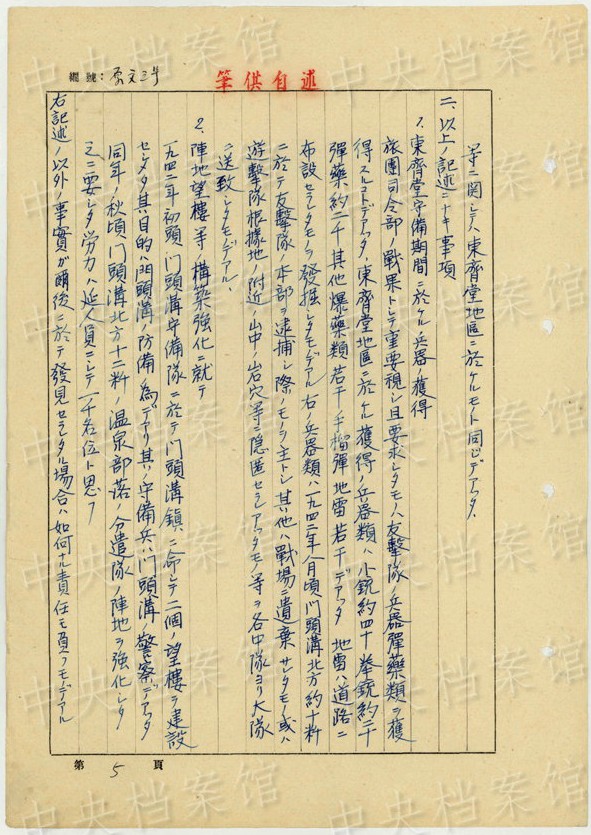 編號：原文三号
筆供自述
等ニ関シテハ東齊堂地區ニ於ケルモノト同じデアッタ、
二、以上ノ記述ニナキ事項
1、東齊堂守備期間ニ於ケル兵器ノ獲得
旅團司令部ノ戰果トシテ重要視シ且要求シタモノハ友擊隊ノ兵器彈藥類ヲ獲
得スルコトデアッタ、東齊堂地區ニ於ケル獲得ノ兵器類ハ小銃約四十拳銃約二十
彈藥約二千其他爆藥類若干、手榴彈地雷若干デアッタ 地雷ハ道路ニ
布設セラレタモノヲ發掘シタモノデアル右ノ兵器類ハ一九四二年八月頃門頭溝北方約十粁
ニ於テ友擊隊ノ本部ヲ逮捕シ際ノモノヲ主トシ其ノ他ハ戰場ニ遺棄サレタモノ或ハ
遊擊隊根據地ノ附近ノ山中ノ岩穴等ニ隱匿セラレアッタモノ等ヲ各中隊ヨリ大隊
ニ送致シタモノデアル、
2、陣地望樓等ノ構築強化ニ就テ
一九四二年初頭門頭溝守備隊ニ於テ門頭溝鎮ニ命シテ二個ノ望樓ヲ建設
セシメタ其ノ目的ハ門頭溝ノ防備ノ為デアリ其ノ守備兵ハ門頭溝ノ警察デアッタ
同年ノ秋頃門頭溝北方十二粁ノ溫泉部落ノ分遣隊ノ陣地ヲ強化シタ
之ニ要シタ労力ハ延人員ニシテ一千名位ト思フ
右記述ノ以外ノ事實ガ爾後ニ於テ發見セラレタル場合ハ如何ナル責任モ負フモノデアル
第 5 頁
中央档案馆